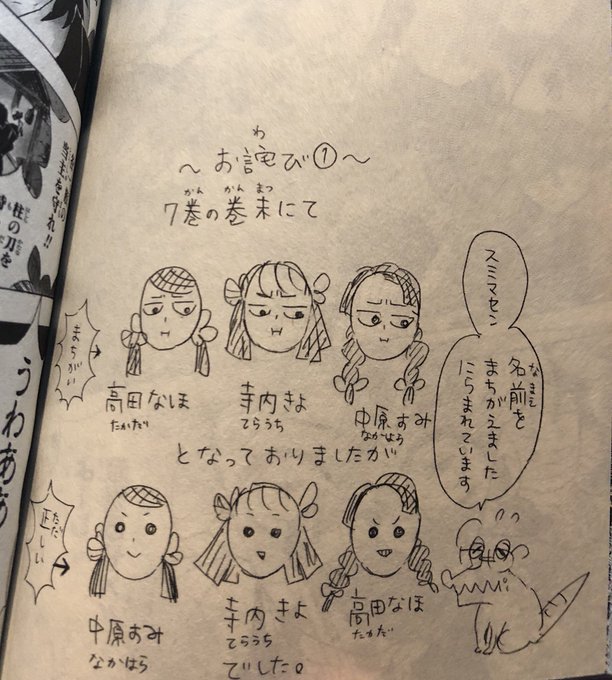 ～お詫び①～
わ
7巻の巻末にて
かん かん まつ
まちがい
高田なほ
たかだ
寺内きよ
てらうち
中原すみ
なかはら
となっておりましたが
正しい
ただ
中原すみ
なかはら
寺内きよ
てらうち
高田なほ
たかだ
でした。
スミマセン
名前を
なまえ
まちがえました
にらまれています
柱の刀を
はしら かたな
うわああ